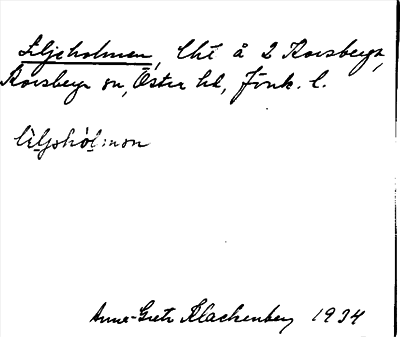 Liljeholmen, lht å 2 Korsberga,
Korsberga sn, Östra hd, Jönk. l.
lìljəhòl:mən
Anna-Greta Klackenberg 1934